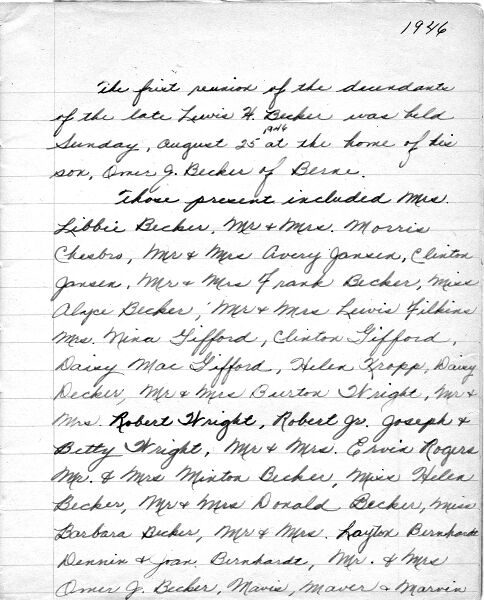 1946
The first reunion of the decendants
of the late Lewis H. Becker was held
Sunday, August 25 1946 at the home of his
son, Omer J. Becker of Berne.
Those present included Mrs.
Libbie Becker, Mr & Mrs. Morris
Chesbro, Mr & Mrs Avery Jansen, Clinton
Jansen, Mr & Mrs Frank Becker, Miss
Alyce Becker, Mr & Mrs Lewis Filkins
Mrs. Nina Gifford, Clinton Gifford,
Daisy Mae Gifford, Helen Kropp, Daisy
Decker, Mr & Mrs Burton Wright, Mr &
Mrs. Robert Wright, Robert Jr. Joseph &
Betty Wright, Mr & Mrs. Ervin Rogers
Mr. & Mrs Minton Becker, Miss Helen
Becker, Mr & Mrs Donald Becker, Miss
Barbara Becker, Mr & Mrs. Layton Bernhardt
Dennin & Joan Bernhardt, Mr. & Mrs
Omer J. Becker, Mavis, Maver & Marvin